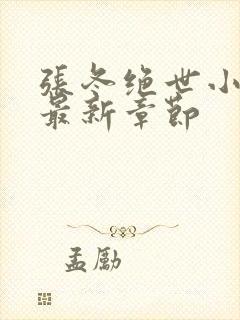 張冬绝世小
最新章節
孟勵